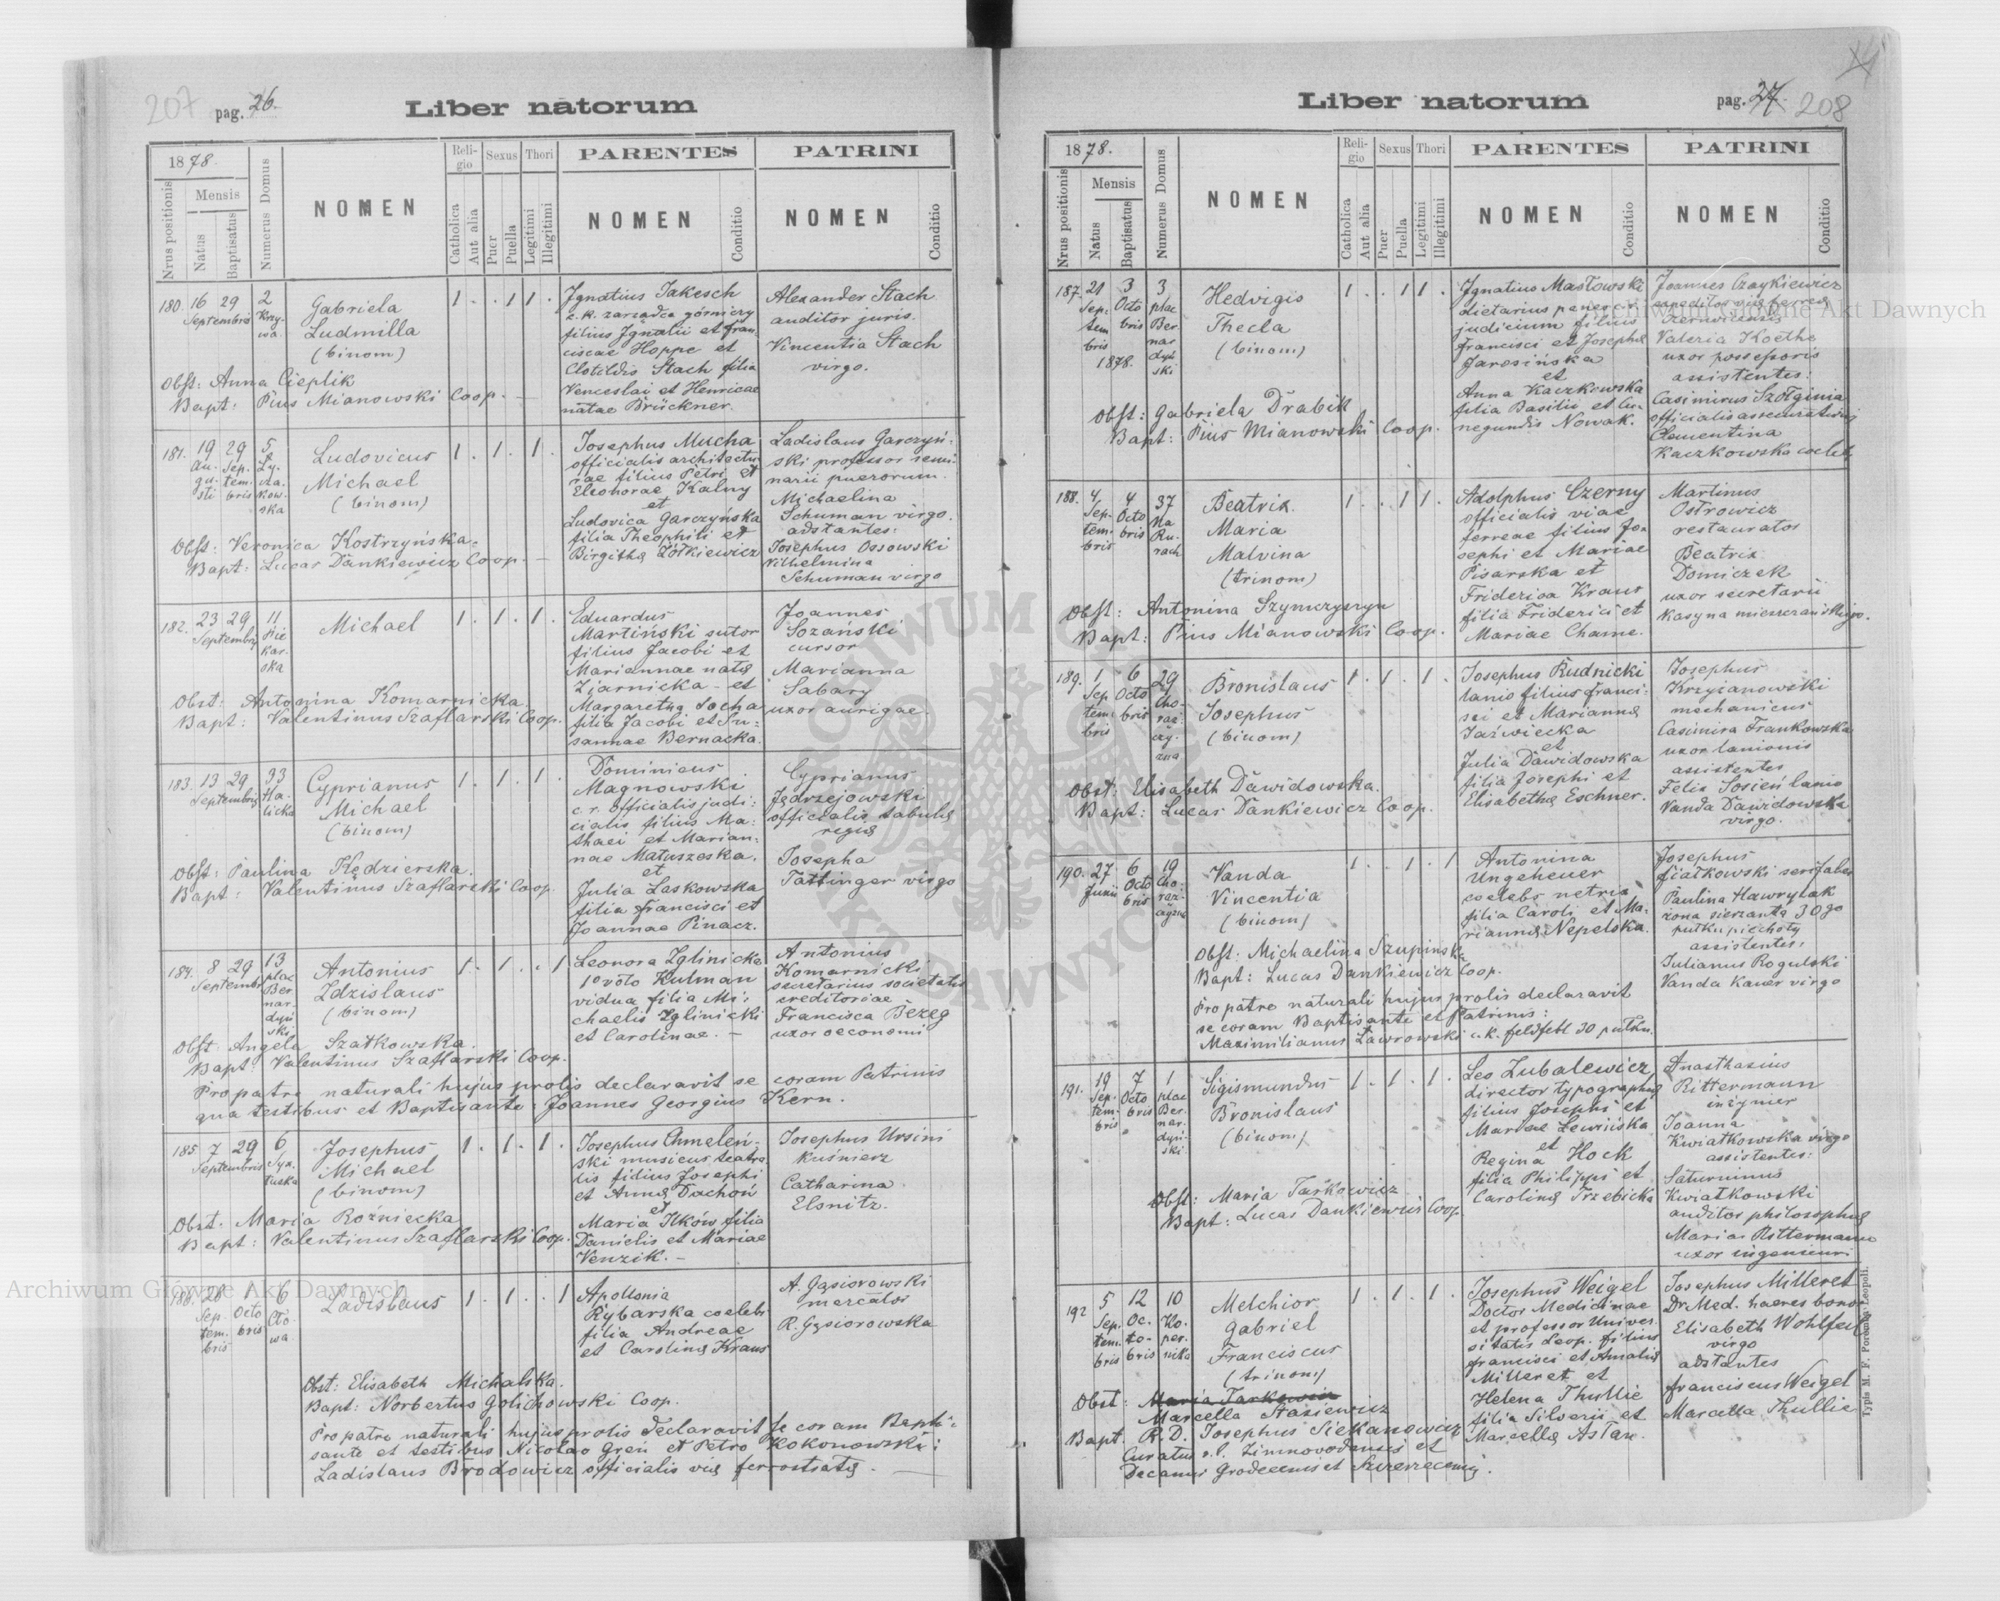 207 pag. 26.
Liber natorum
1878.
Nrus positionis
Mensis
Natus
Baptisatus
Numerus Domus
NOMEN
Religio
Catholica
Aut alia
Sexus
Puer
Puella
Thori
Legitimi
Illegitimi
PARENTES
NOMEN
Conditio
PATRINI
NOMEN
Conditio
180. 16 29 Septembris
2 Krzywa
Gabriela
Ludmilla
(binom)
1 . . 1 1 .
Ignatius Jakesch
c. k. zarządca górniczy
filius Ignatii et Fran-
ciscae Hoppe et
Clotildis Stach filia
Venceslai et Henricae
natae Brückner.
Alexander Stach
auditor juris.
Vincentia Stach
virgo.
Obst: Anna Cieplik
Bapt: Pius Mianowski Coop.
181. 19 Augusti 29 Septembris
5 Łyczakowska
Ludovicus
Michael
(binom)
1 . 1 . 1 .
Josephus Mucha
officialis architectu-
rae filius Petri et
Eleonorae Kalny
et
Ludovica Garczyńska
filia Theophili et
Birgittae Żółkiewicz
Ladislaus Garczyń-
ski professor semi-
narii puerorum.
Michaelina
Schuman virgo.
adstantes:
Josephus Ossowski
Vilhelmina
Schuman virgo
Obst: Veronica Kostrzyńska.
Bapt: Lucas Dankiewicz Coop.
182. 23 29 Septembris
11 Piekarska
Michael
1 . 1 . 1 .
Eduardus
Martiński sutor
filius Jacobi et
Mariannae natę
Ziarnicka et
Margaretha Socha
filia Jacobi et Su-
sannae Bernacka.
Joannes
Sozański
cursor
Marianna
Sabary
uxor aurigae.
Obst: Antonina Komarnicka.
Bapt: Valentinus Szaflarski Coop.
183. 13 29 Septembris
33 Halicka
Cyprianus
Michael
(binom)
1 . 1 . 1 .
Dominicus
Magnowski
c. r. officialis judi-
cialis filius Ma-
thaei et Marian-
nae Matuszeska.
et
Julia Laskowska
filia Francisci et
Joannae Pinacz.
Cyprianus
Jędrzejowski
officialis tabulę
regię
Josepha
Tattinger virgo
Obst: Paulina Kędzierska.
Bapt: Valentinus Szaflarski Coop.
184. 8 29 Septembris
13 plac Bernardyński
Antonius
Zdzislaus
(binom)
1 . 1 . . 1
Leonora Zglinicka
1o voto Kulman
vidua filia Mi-
chaelis Zglinicki
et Carolinae.
Antonius
Komarnicki
secretarius societatis
creditoriae
Francisca Bezeg
uxor oeconomi
Obst: Angela Szatkowska.
Bapt: Valentinus Szaflarski Coop.
Pro patre naturali hujus prolis declaravit se coram Patrinis
qua testibus et Baptisante: Joannes Georgius Kern.
185. 7 29 Septembris
6 Syxtuska
Josephus
Michael
(binom)
1 . 1 . 1 .
Josephus Chmeleń-
ski musicus teatra-
lis filius Josephi
et Annę Dachoń
et
Maria Ilków filia
Danielis et Mariae
Venzik.
Josephus Ursini
kuśnierz
Catharina
Elsnitz.
Obst. Maria Rożniecka
Bapt: Valentinus Szaflarski Coop.
186. 28 Septembris 1 Octobris
6 Ctowa
Ladislaus
1 . 1 . . 1
Apollonia
Rybarska coelebs
filia Andreae
et Carolinę Kraus
A. Gąsiorowski
mercator
R. Gąsiorowska
Obst: Elisabeth Michalska.
Bapt: Norbertus Golichowski Coop.
Pro patre naturali hujus prolis declaravit se coram Bapti-
sante et testibus Nicolao Greń et Petro Kokonowski:
Ladislaus Brodowicz officialis vię ferrostratę.
Liber natorum
pag. 27. 208
1878.
Nrus positionis
Mensis
Natus
Baptisatus
Numerus Domus
NOMEN
Religio
Catholica
Aut alia
Sexus
Puer
Puella
Thori
Legitimi
Illegitimi
PARENTES
NOMEN
Conditio
PATRINI
NOMEN
Conditio
187. 21 Septembris 1878. 3 Octobris
3 plac Bernardyński
Hedvigis
Thecla
(binom)
1 . . 1 1 .
Ignatius Masłowski
dietarius penes c. r.
judicium filius
Francisci et Josephę
Jaresińska
et
Anna Kaczkowska
filia Basilii et Cu-
negundis Nowak.
Joannes Czaykiewicz
expeditor vię ferreę
Czerniovensis
Valeria Koethe
uxor possessoris
assistentes:
Casimirus Szołginia
officialis assecurationis
Clementina
Kaczkowska coelebs
Obst: Gabriela Drabik
Bapt: Pius Mianowski Coop.
188. 4 Septembris 4 Octobris
37 Na Rurach
Beatrix
Maria
Malvina
(trinom)
1 . . 1 1 .
Adolphus Czerny
officialis viae
ferreae filius Jo-
sephi et Mariae
Pisarska et
Friderica Kraus
filia Friderici et
Mariae Chame.
Martinus
Ostrowicz
restaurator
Beatrix
Domiczek
uxor secretarii
Kasyna mieszczańskiego.
Obst: Antonina Szymczyszyn
Bapt: Pius Mianowski Coop.
189. 1 Septembris 6 Octobris
29 Chorążczyzna
Bronislaus
Josephus
(binom)
1 . 1 . 1 .
Josephus Rudnicki
lanio filius Franci-
sci et Mariannę
Jaźwiecka
et
Julia Dawidowska
filia Josephi et
Elisabethę Eschner.
Josephus
Krzyżanowski
mechanicus
Casimira Frankowska
uxor lanionis
assistentes
Felix Sosień lanio
Vanda Dawidowska
virgo.
Obst: Elisabeth Dawidowska.
Bapt: Lucas Dankiewicz Coop.
190. 27 Junii 6 Octobris
19 Chorążczyzna
Vanda
Vincentia
(binom)
1 . . 1 . 1
Antonina
Ungeheuer
coelebs netrix
filia Caroli et Ma-
riannę Nepelska.
Josephus
Fiałkowski serifaber
Paulina Hawrylak
żona sierżanta 30go
pułku piechoty
assistentes:
Julianus Rogulski
Vanda Kauer virgo
Obst: Michaelina Szupinska
Bapt: Lucas Dankiewicz Coop.
Pro patre naturali hujus prolis declaravit
se coram Baptisante et Patrinis:
Maximilianus Ławrowski c. k. feldfebl 30 pułku.
191. 19 Septembris 7 Octobris
1 plac Bernardyński
Sigismundus
Bronislaus
(binom)
1 . 1 . 1 .
Leo Zubalewicz
director typographię
filius Josephi et
Mariae Lewińska
et
Regina Hock
filia Philippi et
Carolinę Trzebicka
Anasthasius
Rittermann
inżynier
Joanna
Kwiatkowska virgo
assistentes:
Saturninus
Kwiatkowski
auditor philosophię
Maria Rittermann
uxor ingenieuri
Obst: Maria Taśkowicz
Bapt: Lucas Dankiewicz Coop.
192 5 Octobris 12 Octobris
10 Kopernika
Melchior
Gabriel
Franciscus
(trinom)
1 . 1 . 1 .
Josephus Weigel
Doctor Medicinae
et professor Univer-
sitatis Leop. filius
Francisci et Amalię
Milleret et
Helena Thullie
filia Silverii et
Marcellę Astan.
Josephus Milleret
Dr Med. haeres bono
Elisabeth Wohlfeil
virgo
adstantes
Franciscus Weigel
Marcella Thullie
Obst: Maria Tarkowicz
Marcella Stasiewicz
Bapt. R. D. Josephus Siekanowicz
Curatus r. l. Zimnovodensis et
Decanus Grodecensis et Szczerzecensis.
Typis M. F. Poremby Leopoli.
Archiwum Główne Akt Dawnych
Archiwum Główne Akt Dawnych
ARCHIWUM GŁÓWNE AKT DAWNYCH